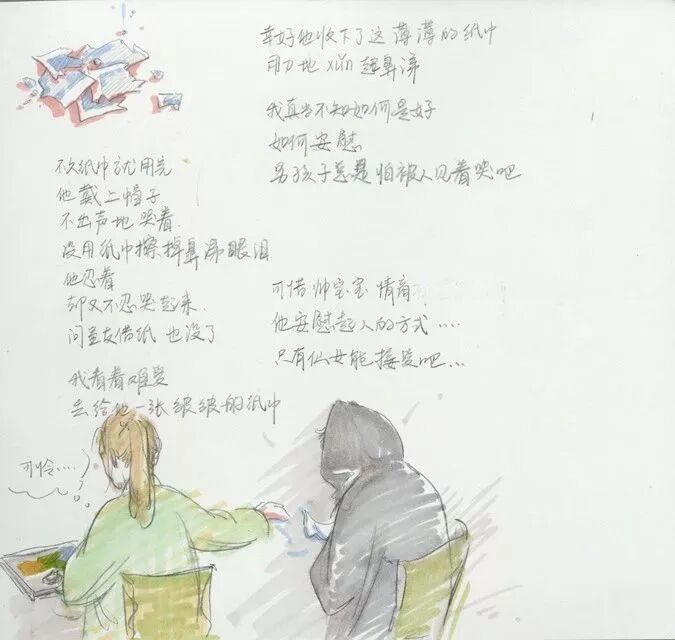 不久纸巾就用完
他戴上帽子
不出声地哭着.
没用纸巾擦掉鼻涕眼泪
他忍着
却又不忍哭起来.
问室友借纸 也没了
我看着难受
去给他一张皱皱的纸巾
可怜....
幸好他收下了这薄薄的纸巾
用力地 xǐn 起鼻涕
我真当不知如何是好
如何安慰
男孩子总是怕被人见着哭吧
可惜帅宝宝 情商
他安慰起人的方式....
只有仙女能接受吧...